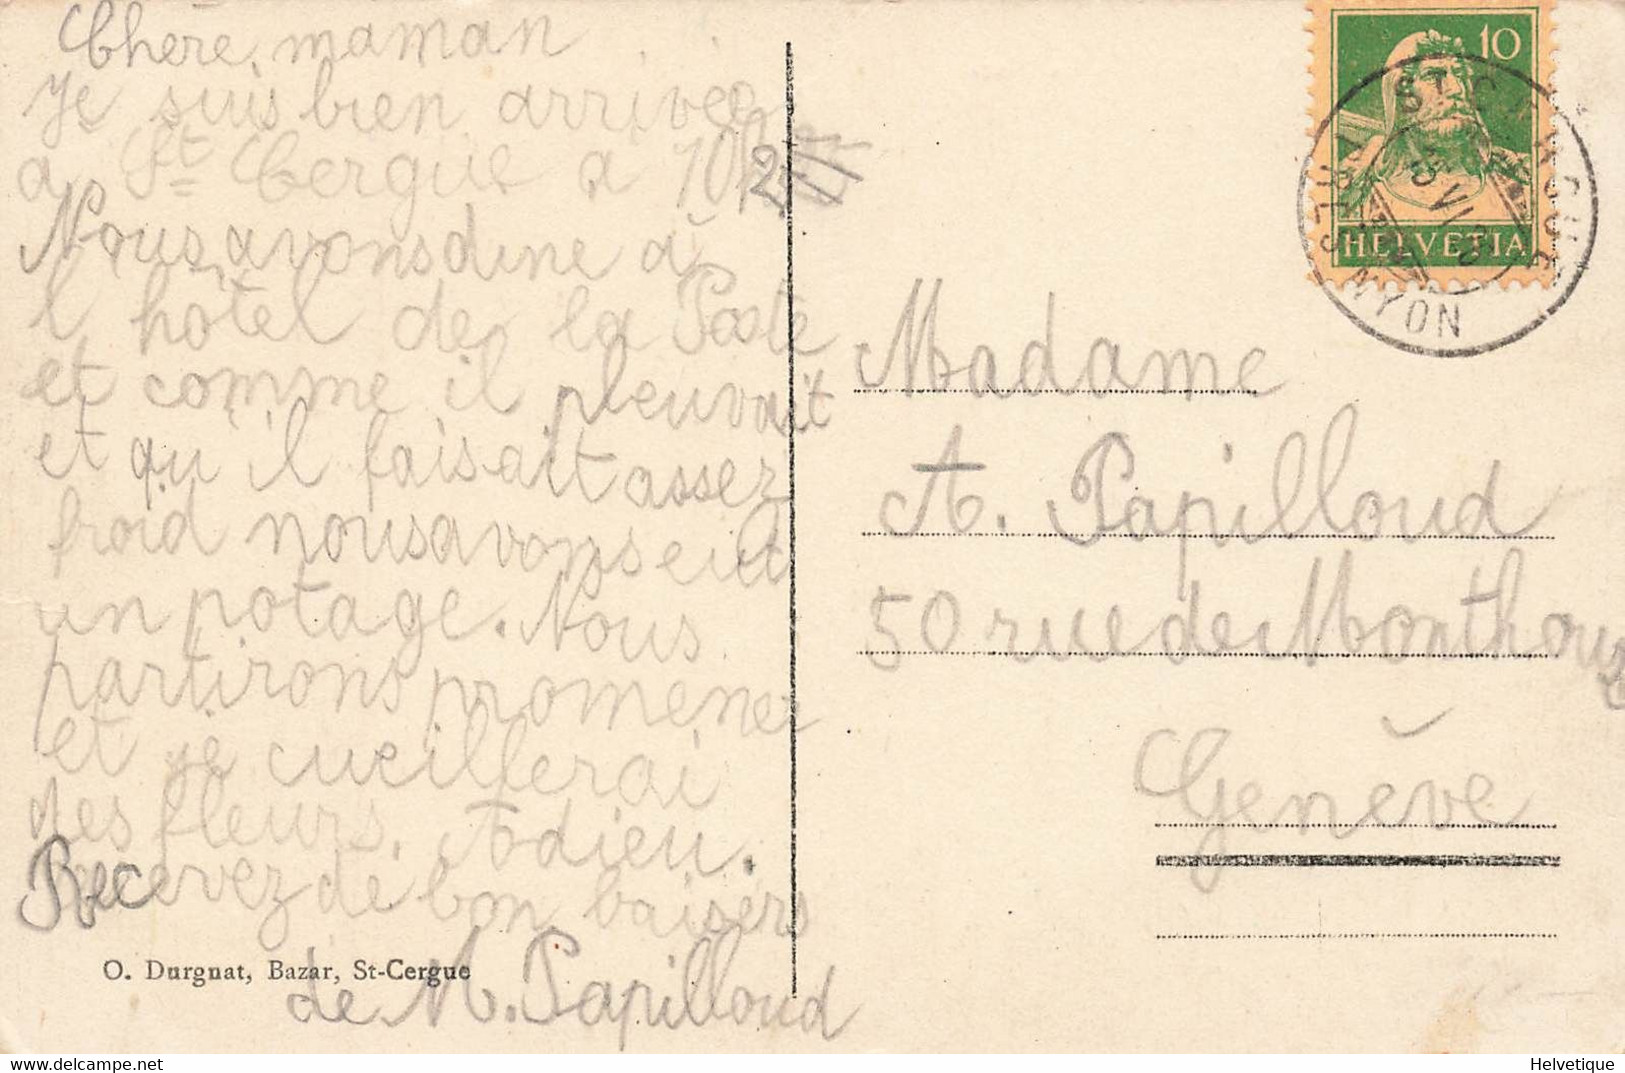 Chère maman
Je suis bien arrivée
a St Cergue a 10h
Nous avons dine à
l hôtel de la Poste
et comme il pleuvait
et qu il faisait assez
froid nous avons eu
un potage. Nous
partirons promener
et je cueillerai
des fleurs. Adieu.
Recevez de bon baisers
de M. Papilloud
O. Durgnat, Bazar, St-Cergue
10
HELVETIA
ST CERGUE
NYON
Madame
A. Papilloud
50 rue de Monthoux
Genève
Helvetique